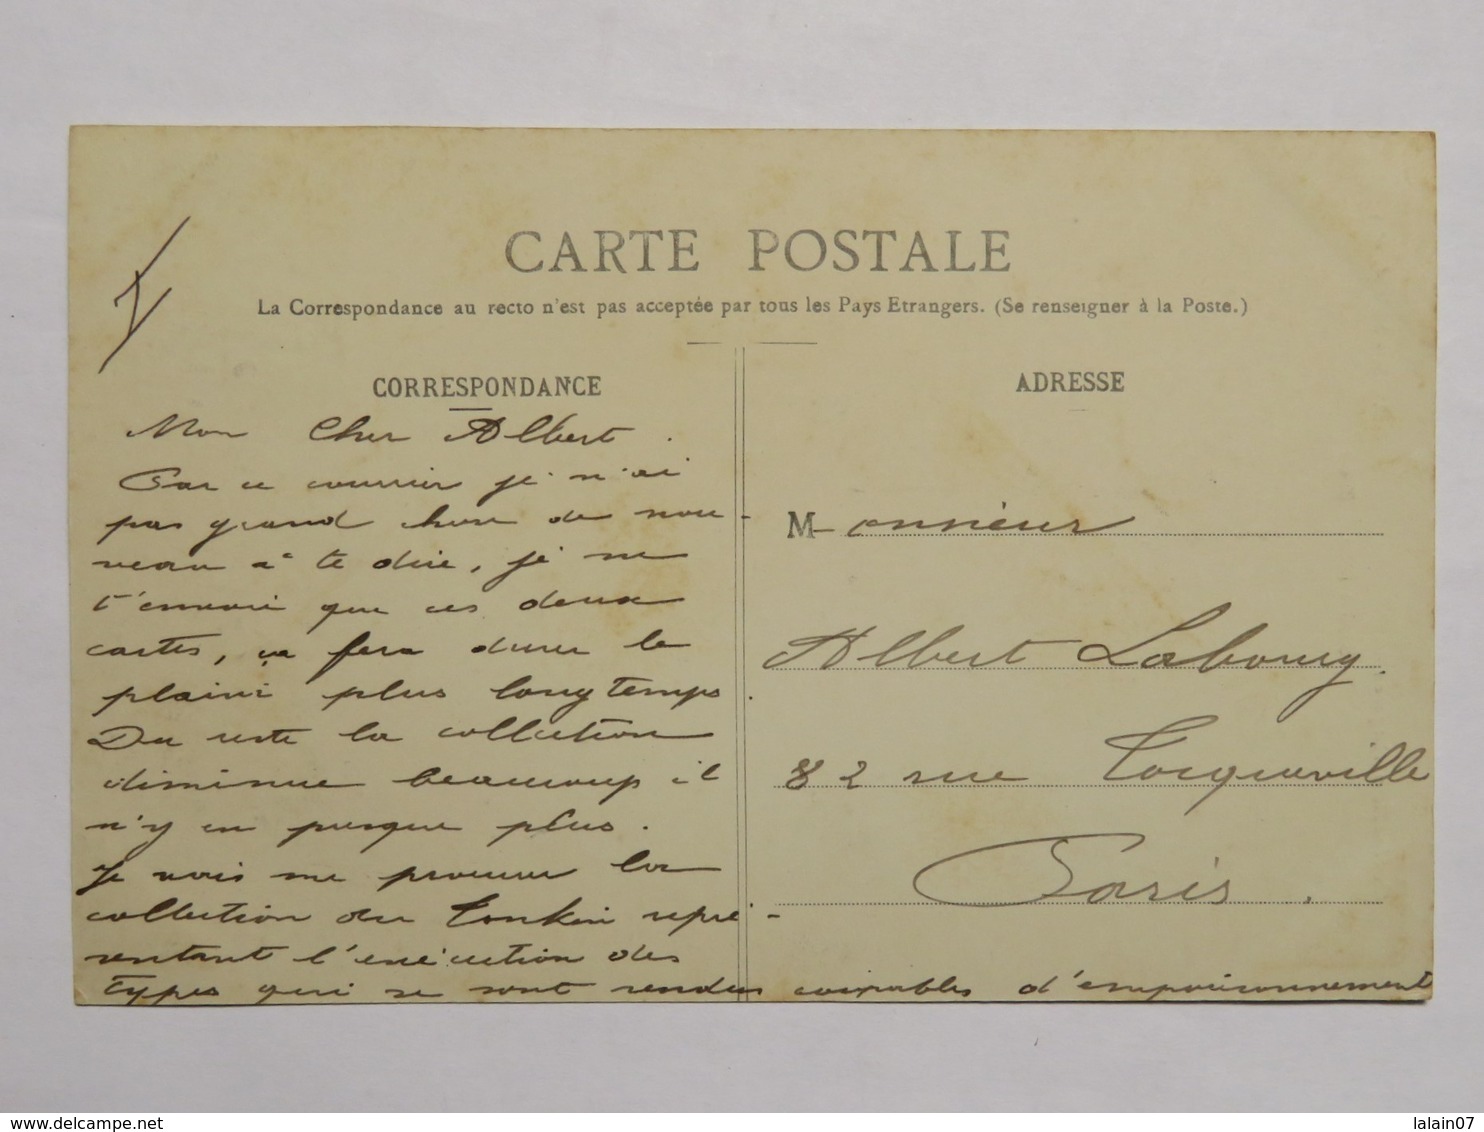 CARTE POSTALE
La Correspondance au recto n'est pas acceptée par tous les Pays Etrangers. (Se renseigner à la Poste.)
CORRESPONDANCE
Mon Cher Albert.
Par ce courrier je n'ai
pas grand chose de nou-
veau à te dire, je ne
t'envoie que ces deux
cartes, ça fera durer le
plaisir plus longtemps.
Du reste la collection
diminue beaucoup il
n'y en presque plus.
Je vais me procurer la
collection du Tonkin repré-
sentant l'exécution des
types qui se sont rendus coupables d'empoisonnement
ADRESSE
Monsieur
Albert Laboury.
82 rue Tocqueville
Paris.
lalain07
www.delcampe.net